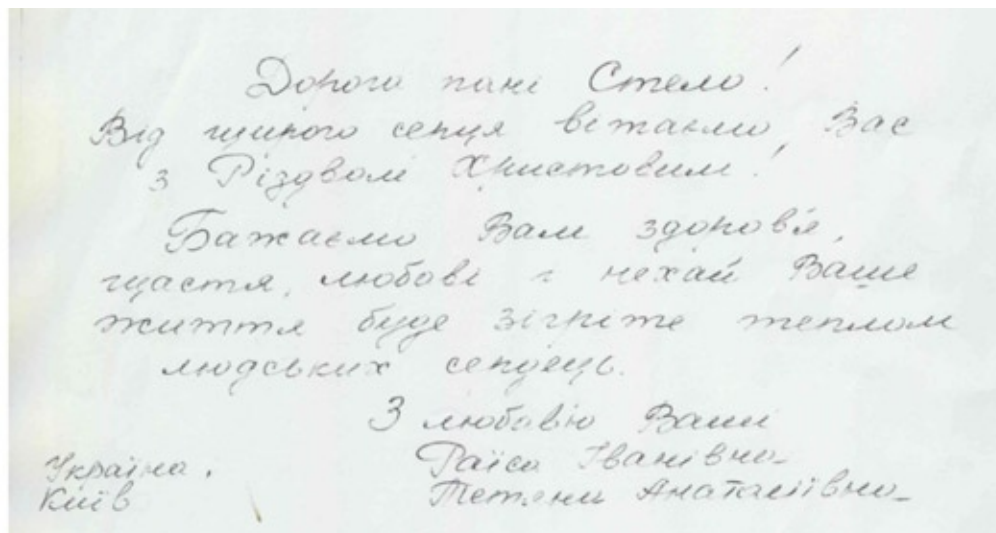 Дорога пані Стело!
Від щирого серця вітаємо Вас
з Різдвом Христовим!
Бажаємо Вам здоров'я,
щастя, любові і нехай Ваше
життя буде зігріте теплом
людських сердець.
З любов'ю Ваші
Раїса Іванівна
Україна.
Київ